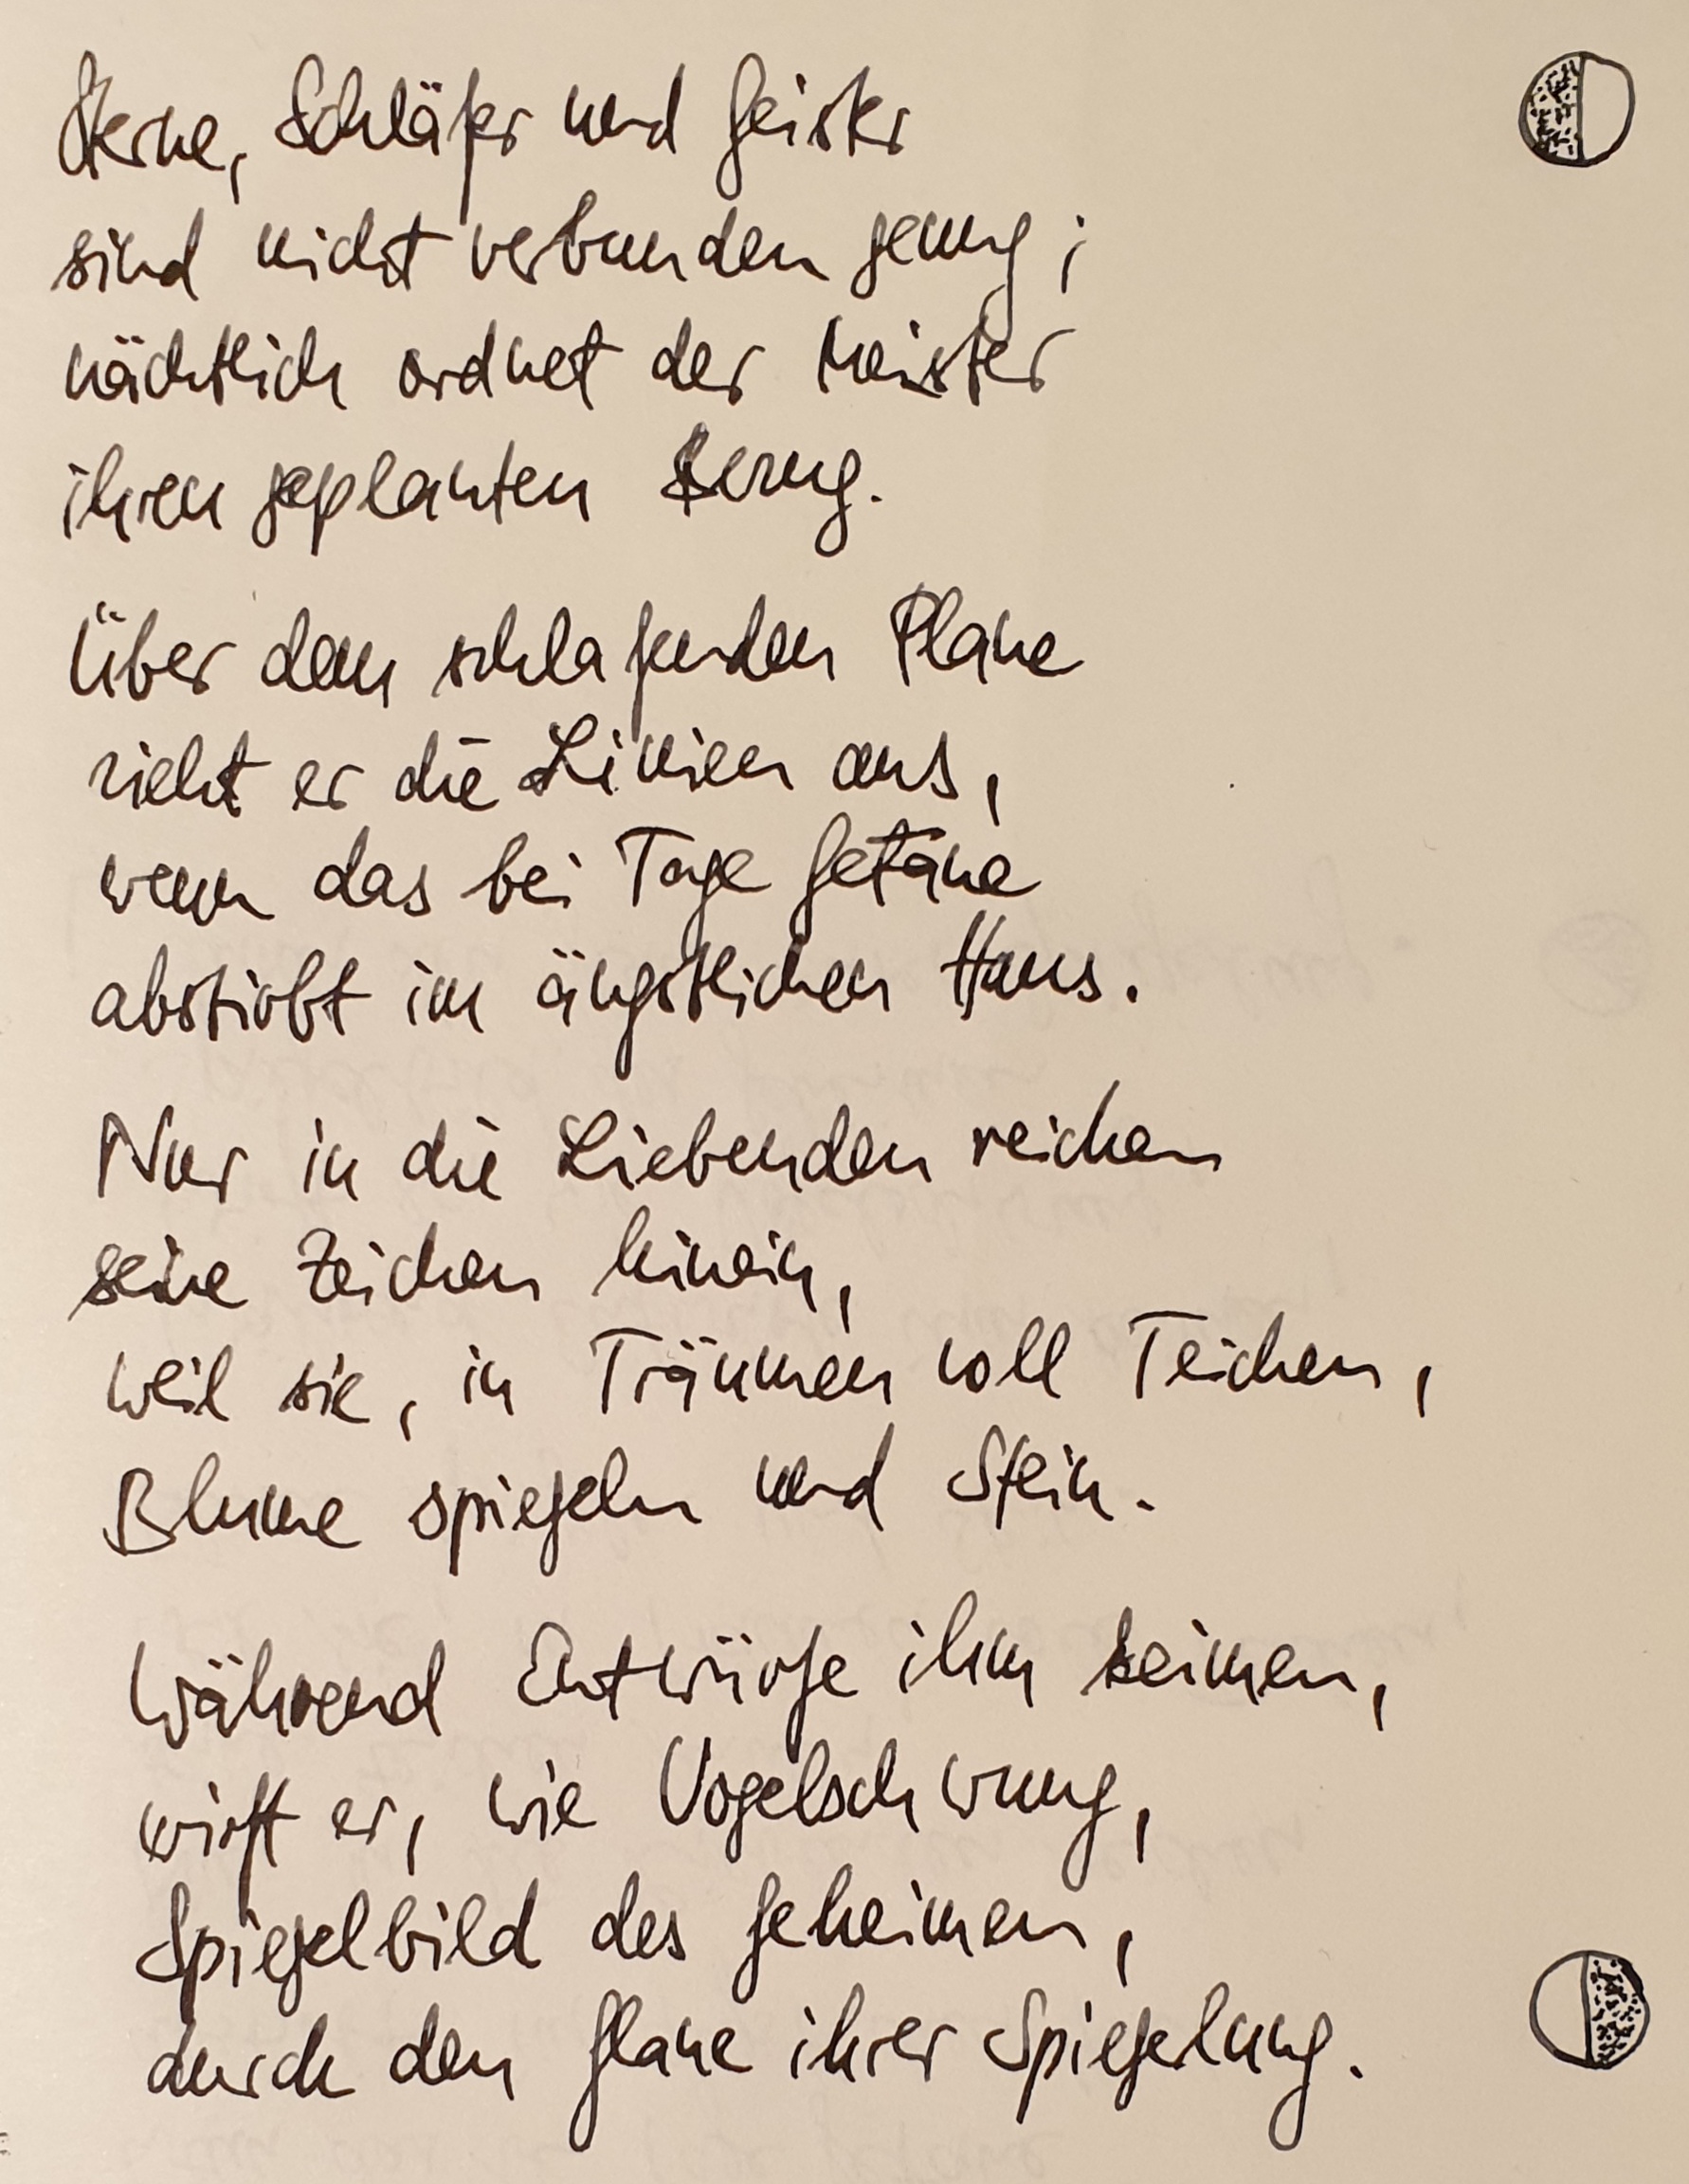 Sterne, Schläfer und Geister
sind nicht verbunden genug;
nächtlich ordnet der Meister
ihren geplanten Bezug.
Über dem schlafenden Plane
zieht er die Linien aus,
wenn das bei Tage Getane
abstirbt im ängstlichen Haus.
Nur in die Liebenden reichen
seine Zeichen hinein,
weil sie, in Träumen voll Teichen,
Blume spiegeln und Stein.
Während Entwürfe ihm keimen,
wirft er, wie Vogelschwung,
Spiegelbild des Geheimen,
durch den Glanz ihrer Spiegelung.